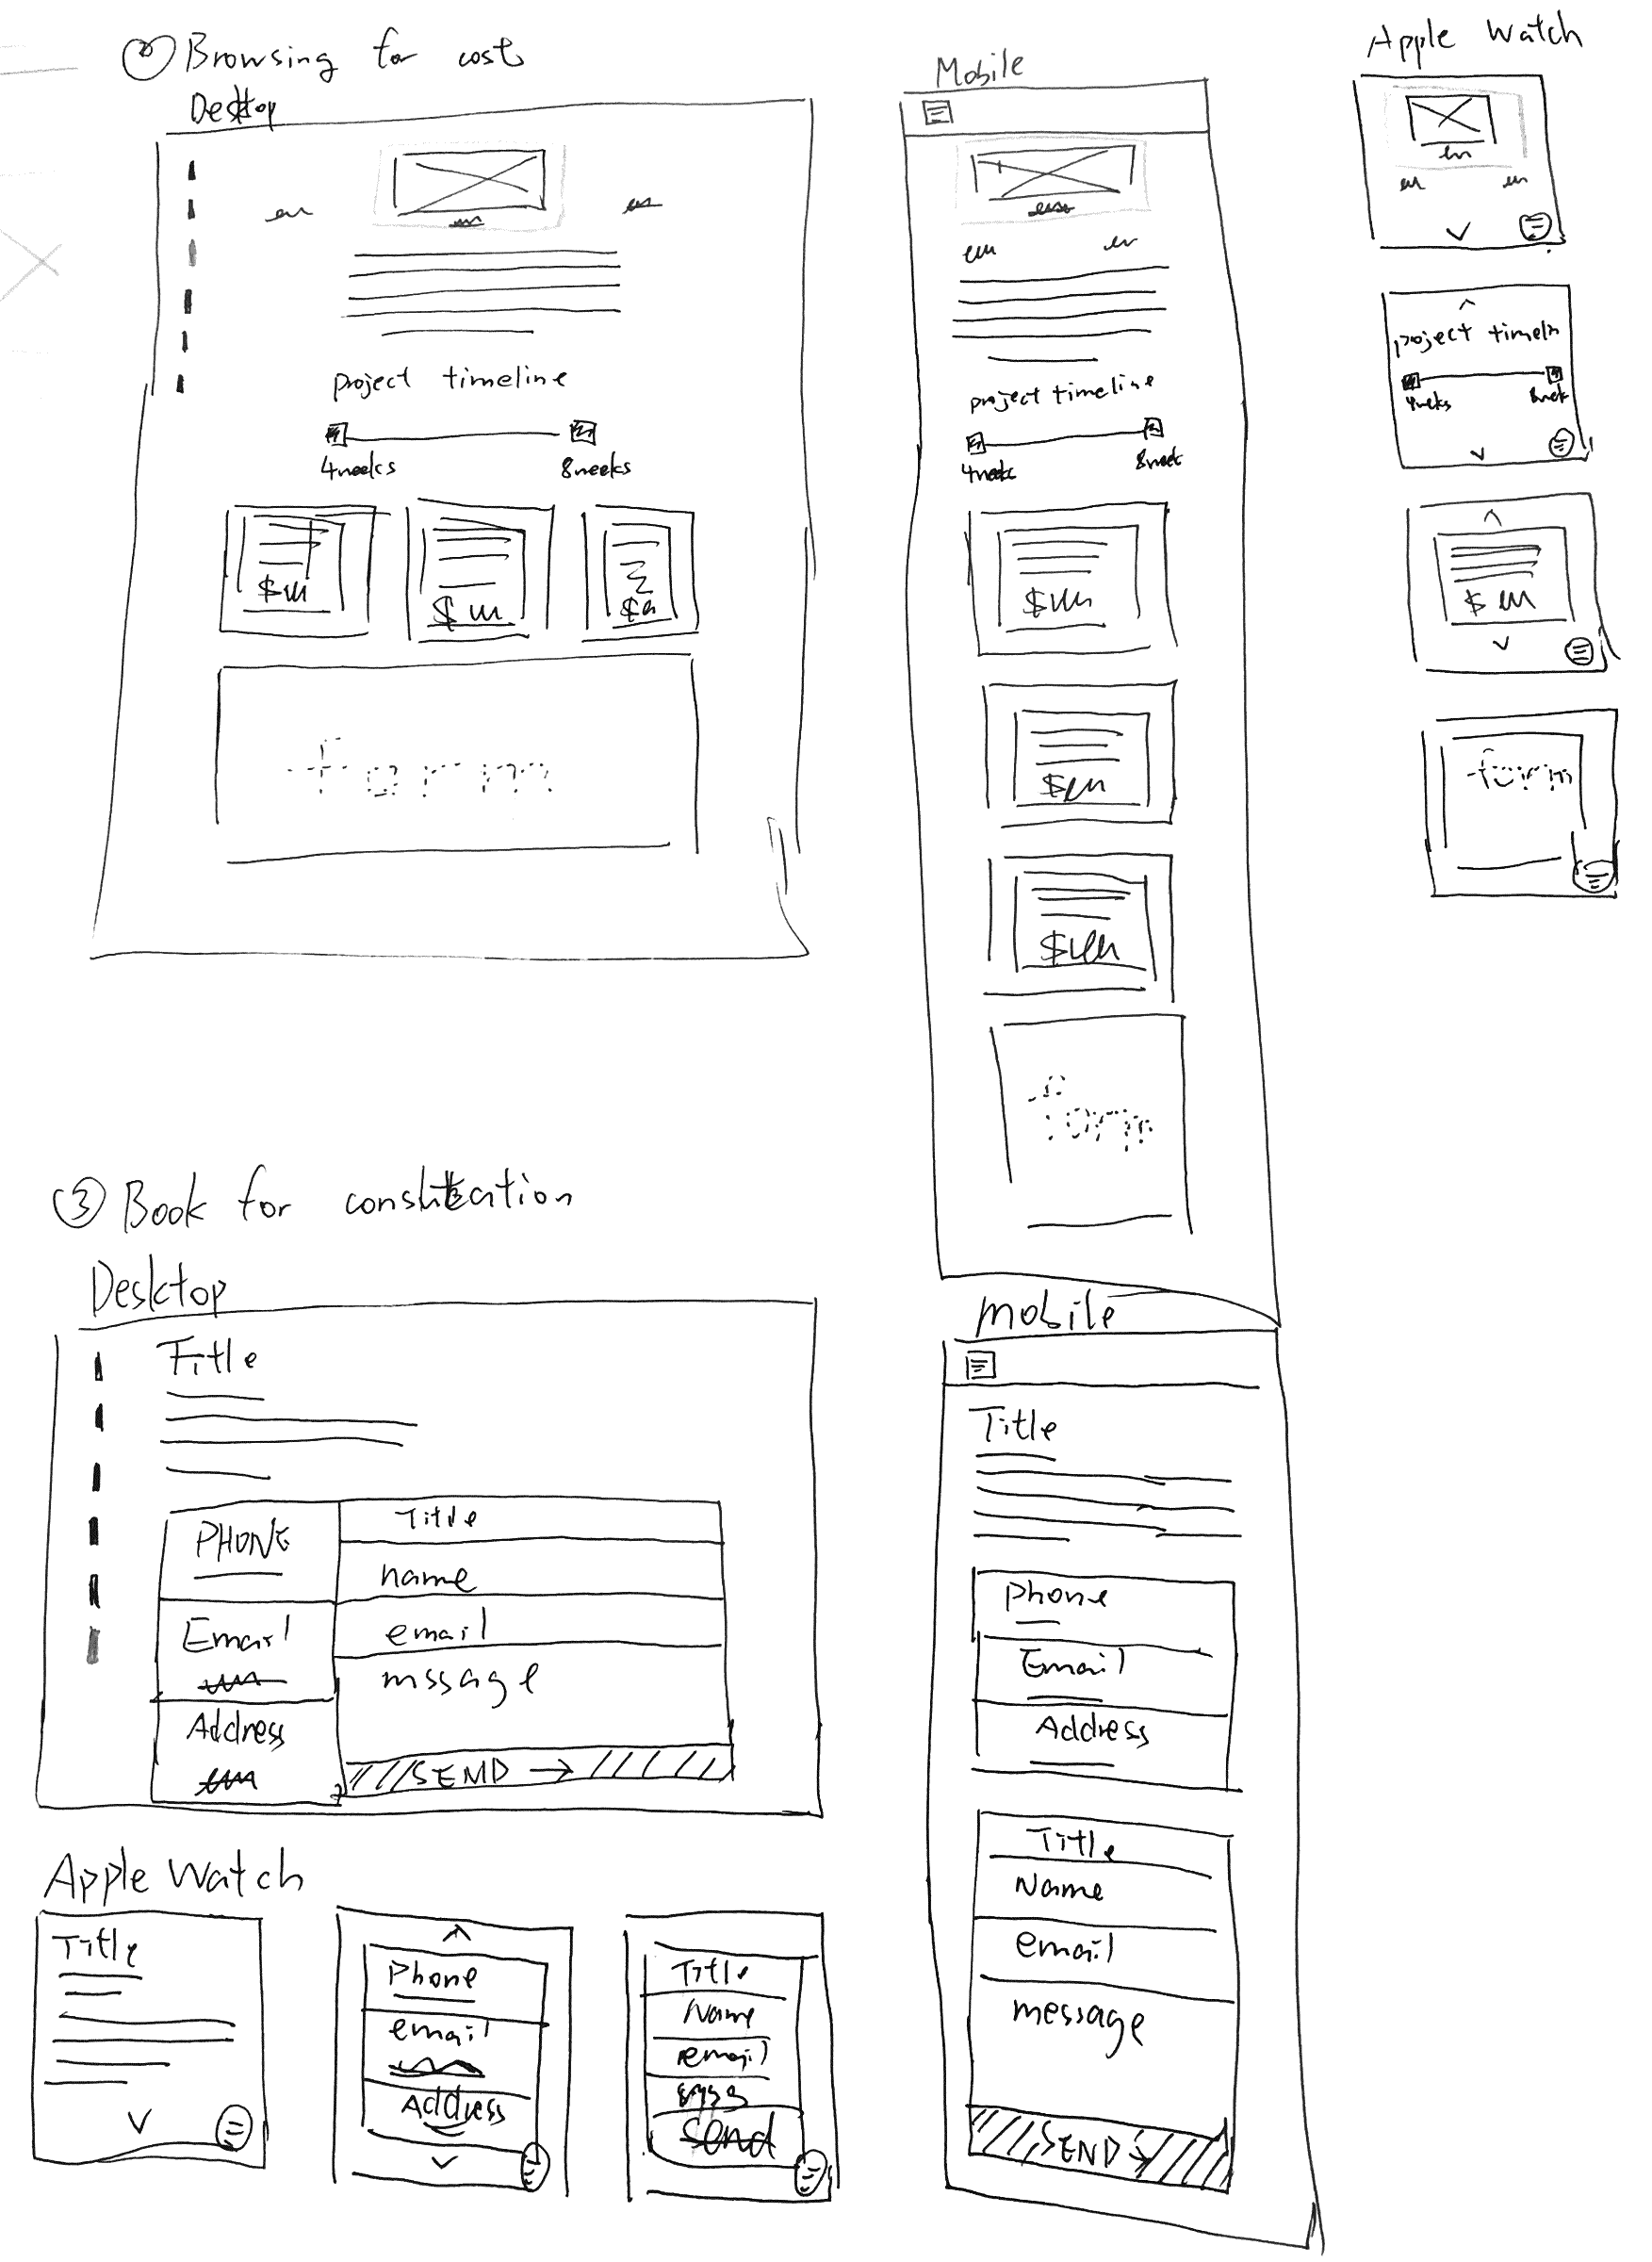 ② Browsing for cost
Desktop
project timeline
4weeks
8weeks
$
$
$
form
Mobile
project timeline
4week
8week
$
$
$
form
Apple Watch
project timeln
4weeks
8week
$
form
③ Book for consultation
Desktop
Title
PHONE
Email
Address
Title
name
email
mssage
SEND →
mobile
Title
Phone
Email
Address
Title
Name
email
message
SEND →
Apple Watch
Title
Phone
email
Address
Title
Name
email
send